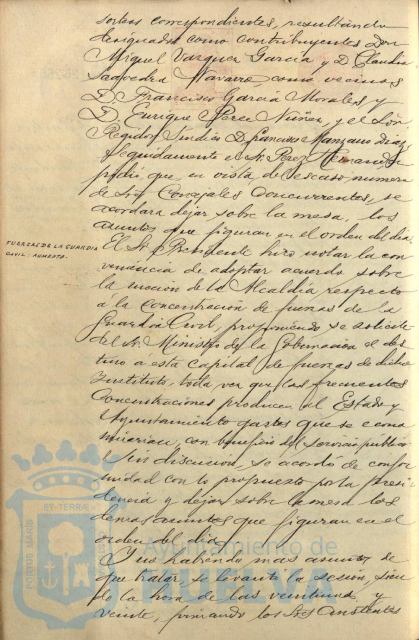 sorteos correspondientes, resultando
designados como contribuyentes Don
Miguel Vazquez Garcia y D. Claudio
Saavedra Navarro, como vecinos
D. Francisco Garcia Morales y
D. Enrique Perez Nuñez, y el Sor
Regidor Sindico D. Francisco Manzano Diaz
Seguidamente el Sr. Perez Hernandez
pidió que en vista del escaso numero
de Sres Concejales concurrentes, se
acordara dejar sobre la mesa, los
asuntos que figuran en el orden del dia.
FUERZAS DE LA GUARDIA
CIVIL: AUMENTO.
El Sr. Presidente hizo notar la con
veniencia de adoptar acuerdo sobre
la mocion de la Alcaldia respecto
a la concentración de fuerzas de la
Guardia Civil, proponiendo se solicite
del Sr. Ministro de la Gobernacion el des
tino á esta Capital de fuerzas de dicho
Instituto, toda vez que las frecuentes
Concentraciones producen al Estado y
Ayuntamiento gastos que se econo
mizarian, con beneficio del servicio publico
Sin discusión, se acordó de confor
midad con lo propuesto por la Presi
dencia y dejar sobre la mesa los
demas asuntos que figuran en el
orden del dia.
Y no habiendo mas asuntos de
que tratar, se levantó la sesión, sien
do la hora de las veintiuna y
veinte, firmando los Sres asistentes
PORTUS MARIS
ET TERRÆ
Ayuntamiento de